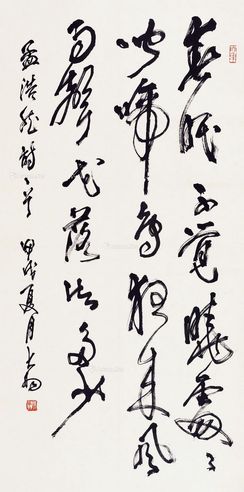 春眠不覺曉處々
聞啼鳥夜來風
雨聲花落知多少
孟浩然詩 甲戌夏月